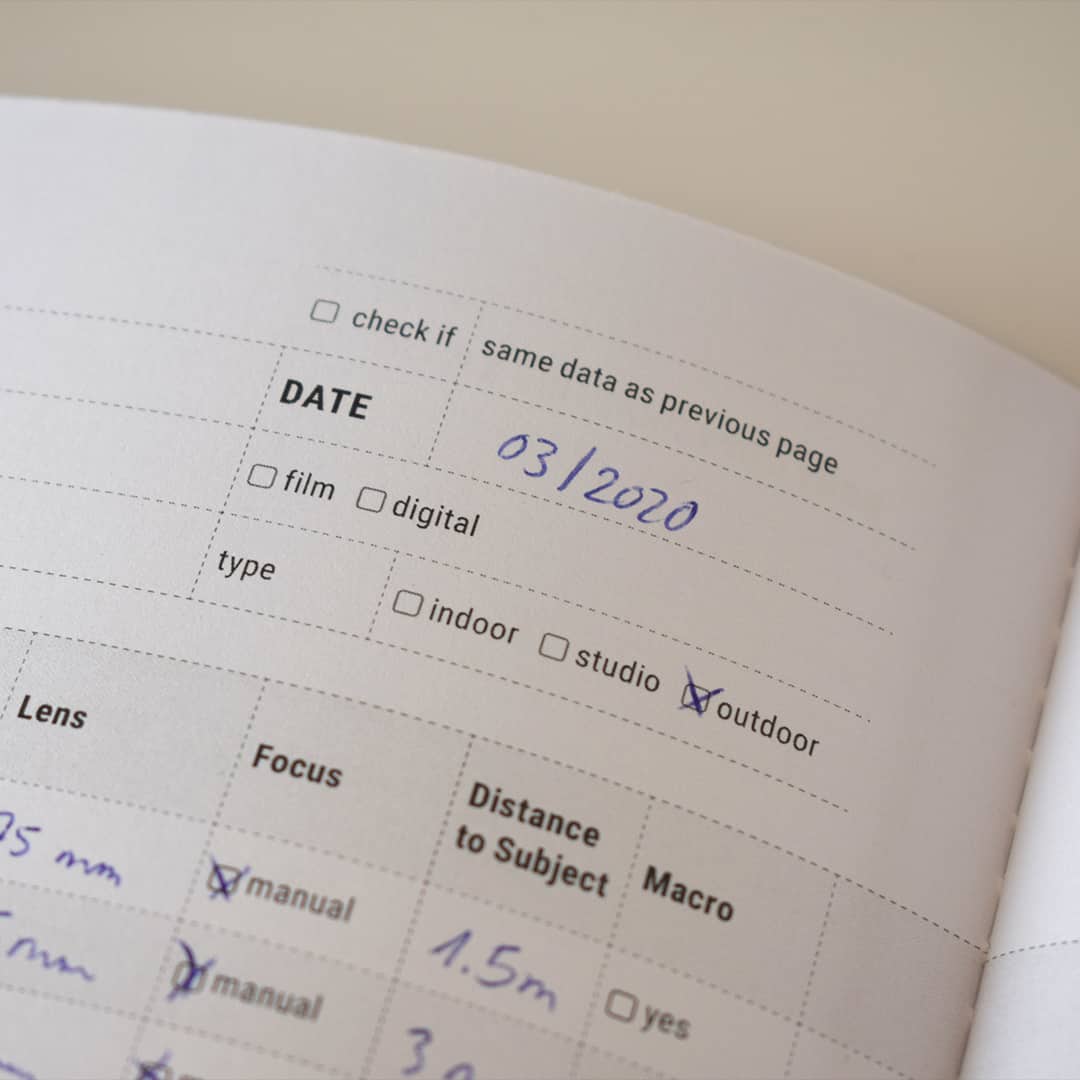 check if same data as previous page
DATE 03/2020
film digital
type indoor studio outdoor
Lens Focus Distance to Subject Macro
mm manual 1.5m yes
mm manual